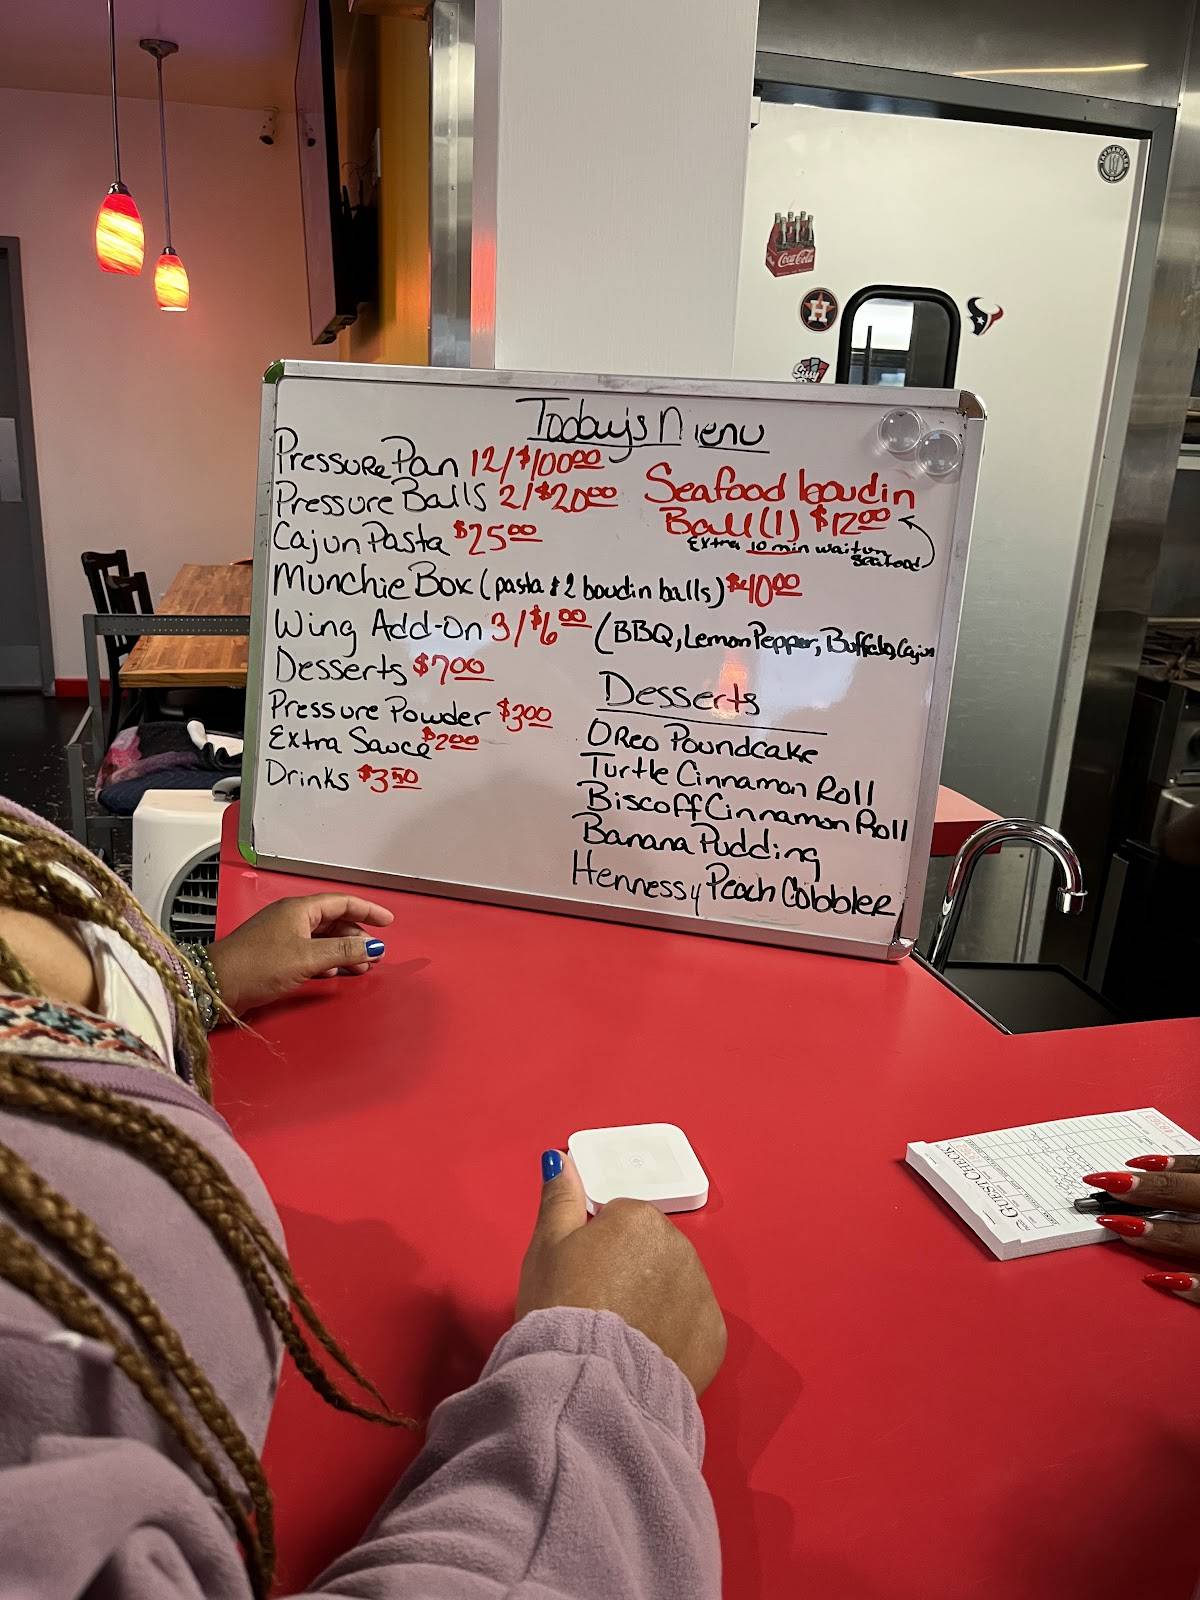 Today's Menu
Pressure Pan 12/$100.00
Pressure Balls 2/$20.00
Cajun Pasta $25.00
Munchie Box (pasta & 2 boudin balls) $40.00
Wing Add-On 3/$6.00 (BBQ, Lemon Pepper, Buffalo, Cajun
Desserts $7.00
Pressure Powder $3.00
Extra Sauce $2.00
Drinks $3.50
Seafood boudin
Ball (1) $12.00
Extra 10 min wait on
seafood
Desserts
Oreo Poundcake
Turtle Cinnamon Roll
Biscoff Cinnamon Roll
Banana Pudding
Hennessy Peach Cobbler
Coca-Cola
H
GUEST CHECK